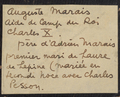 Auguste Marais
Aide de Camp du Roi
Charles X.
père d'Adrien Marais
premier mari de Laure
de Lépine (mariée en
seconde noce avec Charles
Poisson.